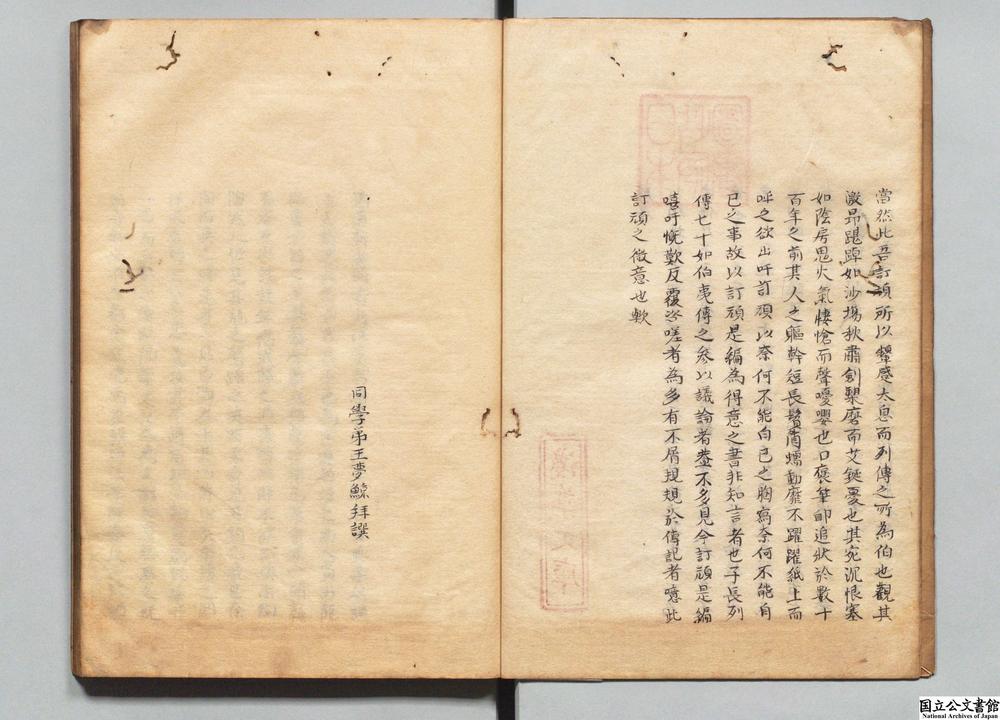 當然此吾訂頑所以顰慼太息而列傳之所為伯也觀其
激昂踶踔如沙場秋肅劍槊磨而艾鋋憂也其宛沉恨塞
如陰房鬼火氣悽愴而聲嚘嚶也口褒筆卽追狀於數十
百年之前其人之軀幹短長鬚眉蠕動靡不躍躍紙上而
呼之欲出吁訂頑以奈何不能白已之胸寫奈何不能自
已之事故以訂頑是編為得意之書非知言者也子長列
傳七十如伯夷傳之參以議論者葢不多見今訂頑是編
嘻吁慨歎反覆咨嗟者為多有不屑規規於傳記者噫此
訂頑之微意也歟
同學弟王夢鯨拜譔
国立公文書館
National Archives of Japan